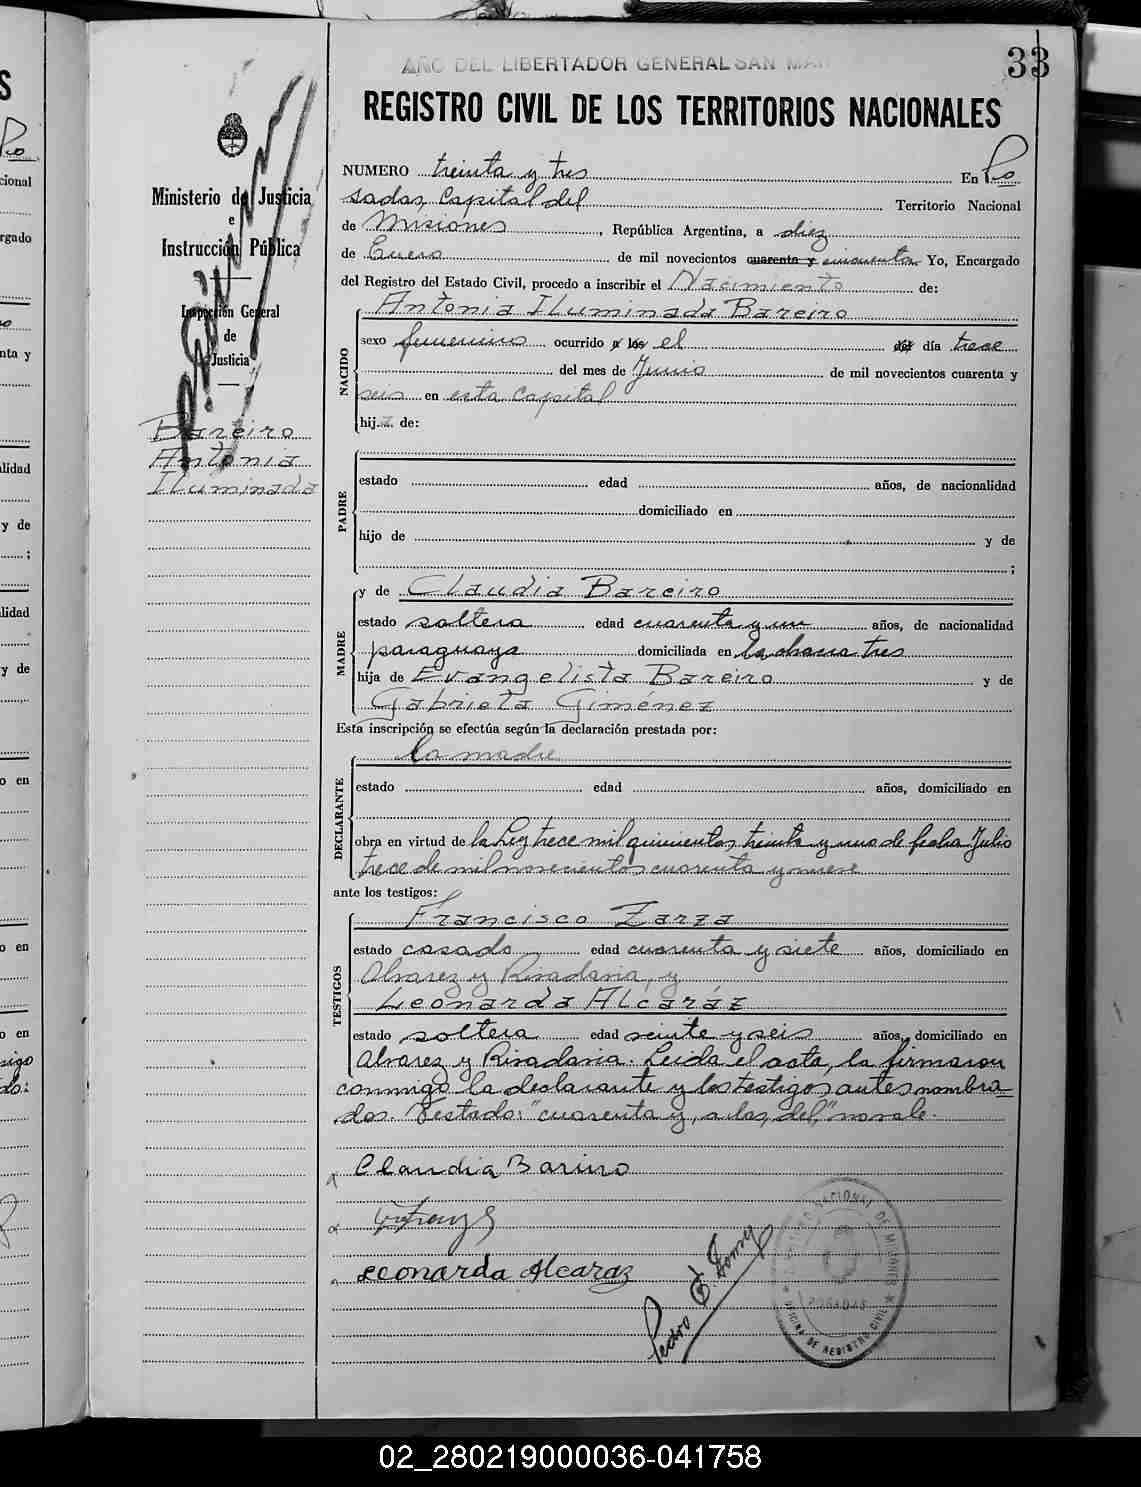 AÑO DEL LIBERTADOR GENERAL SAN MAR
33
REGISTRO CIVIL DE LOS TERRITORIOS NACIONALES
Ministerio de Justicia
e
Instrucción Pública
Inspección General
de
Justicia
Bareiro
Antonia
Iluminada
NUMERO treinta y tres En Po
sadas, Capital del Territorio Nacional
de Misiones, República Argentina, a diez
de Enero de mil novecientos cuarenta y cincuenta Yo, Encargado
del Registro del Estado Civil, procedo a inscribir el Nacimiento de:
NACIDO
Antonia Iluminada Bareiro
sexo femenino ocurrido a las el del día trece
del mes de Junio de mil novecientos cuarenta y
seis en esta Capital
hija de:
PADRE
estado edad años, de nacionalidad
domiciliado en
hijo de y de
;
MADRE
y de Claudia Bareiro
estado soltera edad cuarenta y un años, de nacionalidad
paraguaya domiciliada en la chacra tres
hija de Evangelista Bareiro y de
Gabriela Giménez
Esta inscripción se efectúa según la declaración prestada por:
DECLARANTE
la madre
estado edad años, domiciliado en
obra en virtud de la Ley trece mil quinientos treinta y uno de fecha Julio
trece de mil novecientos cuarenta y nueve
ante los testigos:
TESTIGOS
Francisco Zarza
estado casado edad cuarenta y siete años, domiciliado en
Alvarez y Rivadavia, y
Leonarda Alcaráz
estado soltera edad veinte y seis años, domiciliado en
Alvarez y Rivadavia. Leida el acta, la firmaron
conmigo la declarante y los testigos antes nombra
dos. Testado: "cuarenta y, a las, del," no vale.
Claudia Bariro
Leonarda Alcaraz
Pedro
REGISTRO NACIONAL DE MISIONES
POSADAS
OFICINA DE REGISTRO CIVIL
02_280219000036-041758